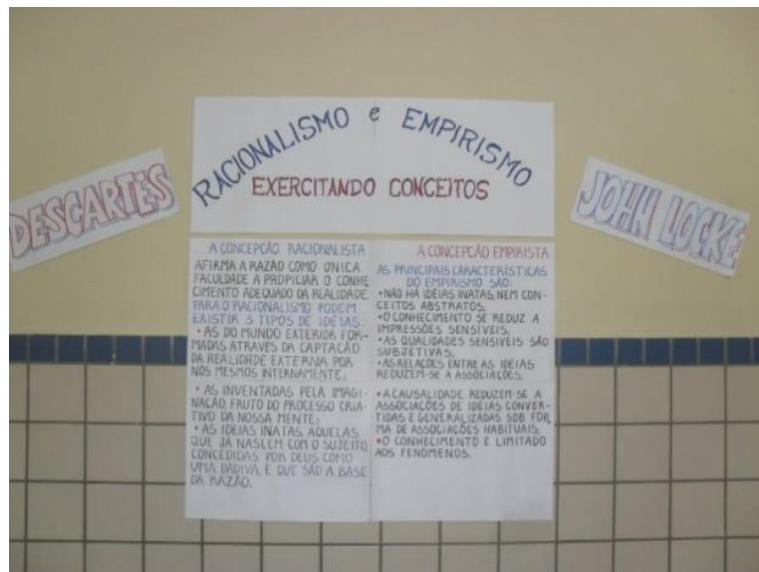 RACIONALISMO e EMPIRISMO
EXERCITANDO CONCEITOS
DESCARTES
JOHN LOCKE
A CONCEPCÃO RACIONALISTA
AFIRMA A RAZÃO COMO ÚNICA
FACULDADE A PROPICIAR O CONHE
CIMENTO ADEQUADO DA REALIDADE.
PARA O RACIONALISMO PODEM
EXISTIR 3 TIPOS DE IDÉIAS:
• AS DO MUNDO EXTERIOR FOR-
MADAS ATRAVÉS DA CAPTAÇÃO
DA REALIDADE EXTERNA POR
NÓS MESMOS INTERNAMENTE;
• AS INVENTADAS PELA IMAGI-
NAÇÃO, FRUTO DO PROCESSO CRIA-
TIVO DA NOSSA MENTE;
• AS IDEIAS INATAS, AQUELAS
QUE JÁ NASCEM COM O SUJEITO
CONCEDIDAS POR DEUS COMO
UMA DÁDIVA, E QUE SÃO A BASE
DA RAZÃO.
A CONCEPCÃO EMPIRISTA
AS PRINCIPAIS CARACTERÍSTICAS
DO EMPIRISMO SÃO:
• NÃO HÁ IDÉIAS INATAS, NEM CON-
CEITOS ABSTRATOS;
• O CONHECIMENTO SE REDUZ A
IMPRESSÕES SENSÍVEIS;
• AS QUALIDADES SENSÍVEIS SÃO
SUBJETIVAS;
• AS RELAÇÕES ENTRE AS IDÉIAS
REDUZEM-SE A ASSOCIAÇÕES;
• A CAUSALIDADE REDUZEM-SE A
ASSOCIAÇÕES DE IDÉIAS CONVER-
TIDAS E GENERALIZADAS SOB FOR
MA DE ASSOCIAÇÕES HABITUAIS;
• O CONHECIMENTO É LIMITADO
AOS FENÔMENOS.